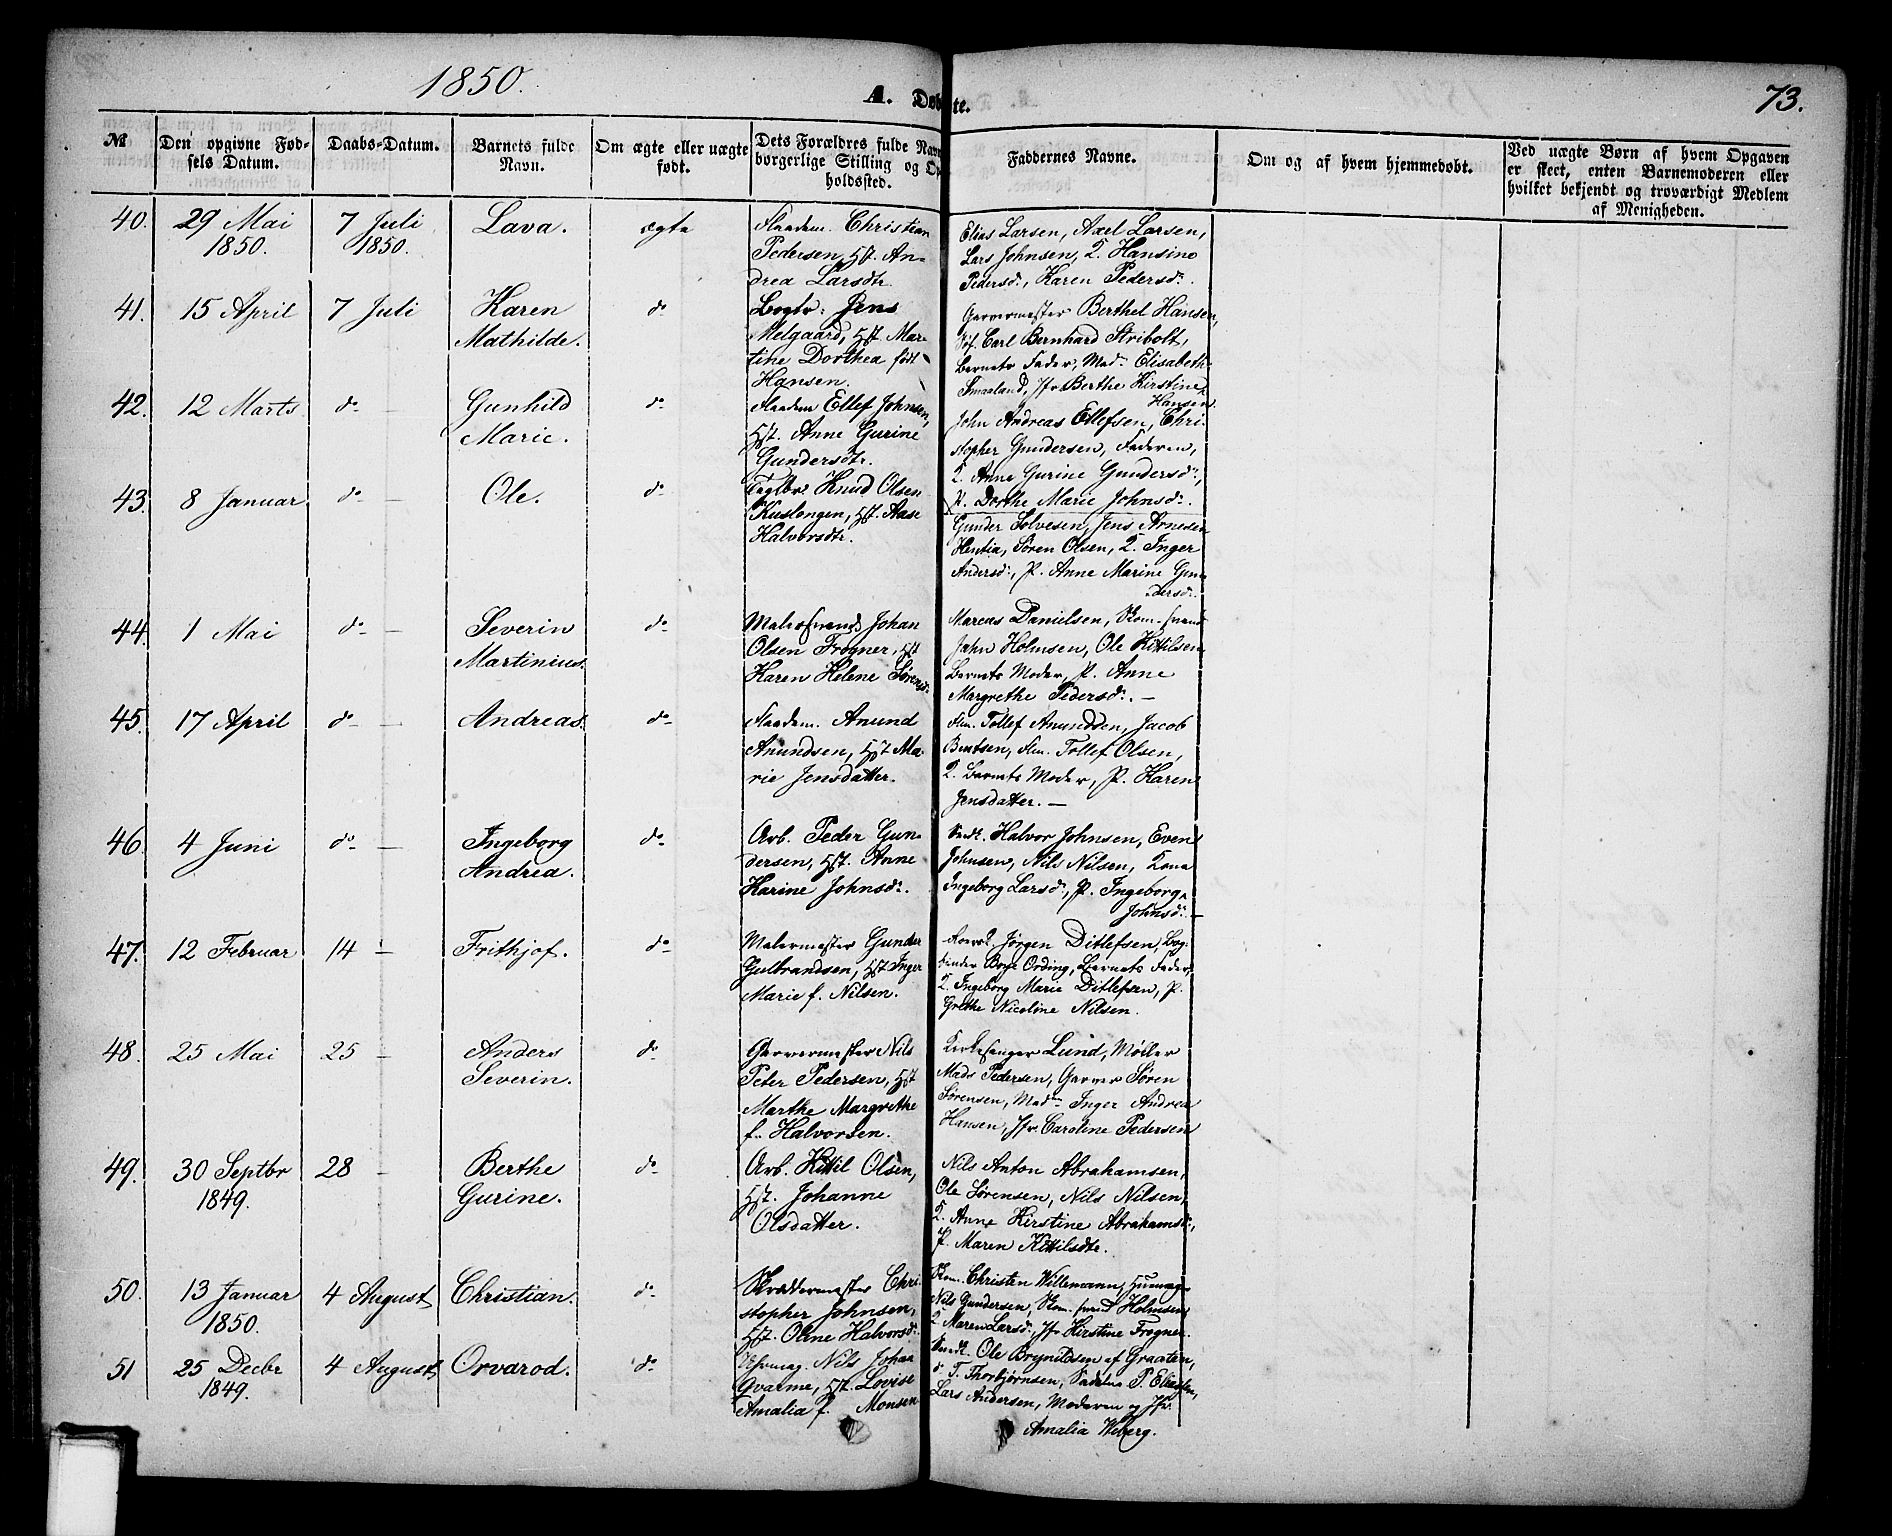 1850.
A. Døbte.
73.
№
Den opgivne Fød-
sels Datum.
Daabs-Datum.
Barnets fulde
Navn.
Om ægte eller uægte
født.
Dets Forældres fulde Navn
borgerlige Stilling og Op
holdssted.
Faddernes Navne.
Om og af hvem hjemmedøbt.
Ved uægte Børn af hvem Opgaven
er skeet, enten Barnemoderen eller
hvilket bekjendt og troværdigt Medlem
af Menigheden.
40.
29 Mai
1850.
7 Juli
1850.
Lava.
ægte
Flaadem. Christian
Pedersen, Hst. An-
drea Larsdtr.
Elias Larsen, Axel Larsen,
Lars Johnsen, K. Hansine
Pedersd., Karen Pedersd.
41.
15 April
7 Juli
Karen
Mathilde.
do
Logtv: Jens
Melgaard, Hst. Mar-
tine Dorthea født
Hansen.
Garvermester Berthel Hansen,
Carl Bernhard Stribolt,
Barnets Fader, Mad. Elisabeth
Smaaland, Jfr Berthe Kirstine
Hansen.
42.
12 Marts
do —
Gunhild
Marie.
do
Flaadem Ellef Johnsen,
Hst. Anne Gurine
Gundersdtr.
John Andreas Ellefsen, Chri-
stopher Gundersen, Faderen,
K. Anne Gurine Gundersd.,
P. Dorthe Marie Johnsd.
43.
8 Januar
do —
Ole.
do
Knud Olsen
Kuslongen, Hst. Aase
Halvorsdtr.
Gunder Solvesen, Jens Arnesen
Søren Olsen, K. Inger
Andersd., P. Anne Marine Gun-
dersd.
44.
1 Mai
do —
Severin
Martinius.
do
Malersvend Johan
Olsen Frogner, Hst
Karen Helene Sørensd.
Marcus Danielsen, Skom. svend
Jahn Holmsen, Ole Kittilsen
Barnets Moder, P. Anne
Margrethe Pedersd. —
45.
17 April
do —
Andreas.
do
Flaadem. Anund
Anundsen, Hst Ma-
rie Jensdatter.
Flm. Tollef Anundsen, Jacob
Bentsen, Flm. Tollef Olsen,
K. Barnets Moder, P. Karen
Jensdatter. —
46.
4 Juni
do —
Ingeborg
Andrea.
do
Arb. Peder Gun-
dersen, Hst. Anne
Karine Johnsd.
Halvor Johnsen, Even
Johnsen, Nils Nilsen, Kone
Ingeborg Larsd., P. Ingeborg
Johnsd. —
47.
12 Februar
14 —
Frithjof.
do
Malermester Gunder
Gulbrandsen, Hst Inger
Marie f. Nilsen.
Jørgen Ditlefsen, Bog-
binder Boye Ording, Barnets Fader,
K. Ingeborg Marie Ditlefsen, P.
Grethe Nicoline Nilsen.
48.
25 Mai
25 —
Anders
Severin.
do
Garvermester Nils
Peter Pedersen, Hst
Marthe Margrethe
f. Halvorsen.
Kirkesanger Lund, Møller
Mads Pedersen, Garver Søren
Sørensen, Mad. Inger Andrea
Hansen, Jfr Caroline Pedersen
49.
30 Septbr
1849.
28 —
Berthe
Gurine.
do
Arb. Kittil Olsen,
Hst. Johanne
Olsdatter.
Nils Anton Abrahamsen,
Ole Sørensen, Nils Nilsen,
K. Anne Kirstine Abrahamsd.,
P. Maren Kittilsdtr.
50.
13 Januar
1850.
4 August
Christian.
do
Skræddermester Chri-
stopher Johnsen,
Hst. Oline Halvorsd.
Skom. Christen Willemann,
Nils Gundersen, Skom. svend Holmsen
K. Maren Larsd., Jfr Kirstine Frogner.
51
25 Decbr
1849.
4 August
Orvarod.
do
Uhrmag. Nils Johan
Qvarme, Hst. Lovise
Amalia f. Monsen
Ole Brynildsen af Graaten,
T. Thorbjørnsen, P. Eliasen,
Lars Andersen, Moderen og Jfr.
Amalia Wiberg.